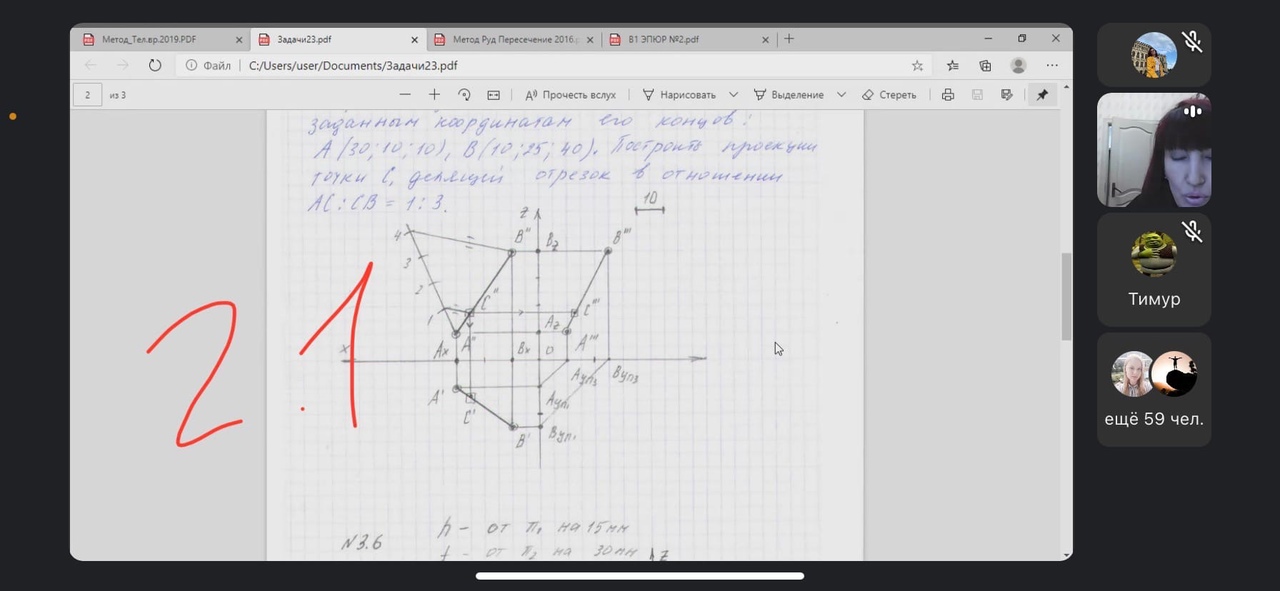 Метод_Тел.вр.2019.PDF
Задачи23.pdf
Метод Руд Пересечение 2016.p
В1 ЭПЮР №2.pdf
Файл
C:/Users/user/Documents/Задачи23.pdf
2
из 3
Прочесть вслух
Нарисовать
Выделение
Стереть
заданным координатам его концов:
А (30; 10; 10), В (10; 25; 40). Построить проекции
точки С, делящей отрезок в отношении
АС : СВ = 1 : 3.
10
z
4
B''
Bz
B'''
3
2
C''
C'''
1
Az
A''
A'''
x
Ax
Bx
0
Aуп3
Bуп3
A'
C'
Aуп1
B'
Bуп1
2.1
h - от П1 на 15мм
N3.6
f - от П2 на 30мм
z
Тимур
ещё 59 чел.